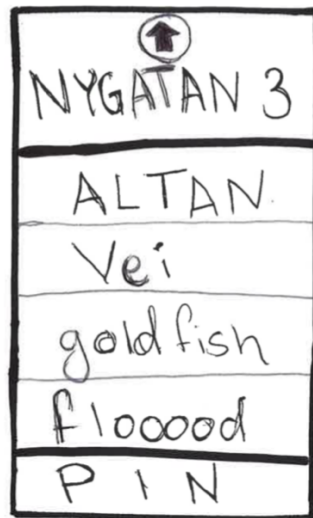 NYGATAN 3
ALTAN
Vei
goldfish
flooood
PIN